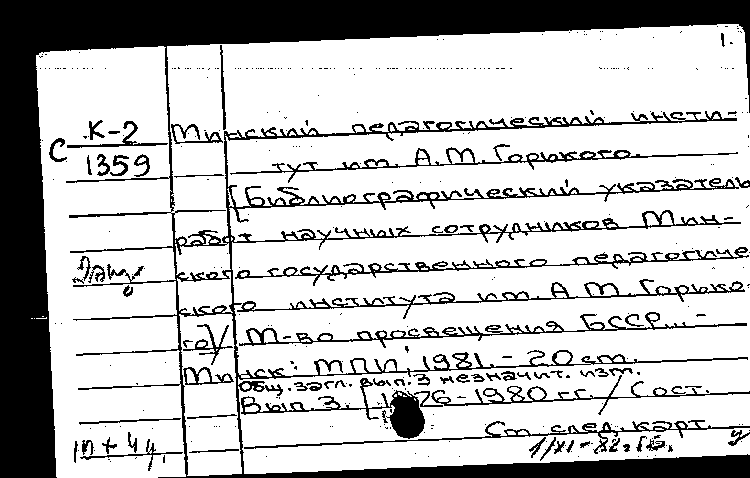 1.
С К-2
1359
Минский педагогический инсти-
тут им. А.М. Горького.
[Библиографический указатель
работ научных сотрудников Мин-
ского государственного педагогиче
ского института им. А.М. Горько-
го] / М-во просвещения БССР... -
Минск: МПИ, 1981. - 20 см.
Общ. загл. вып. 3 незначит. изм.
Вып. 3. [1976-1980 гг. / Сост.
См след. карт.